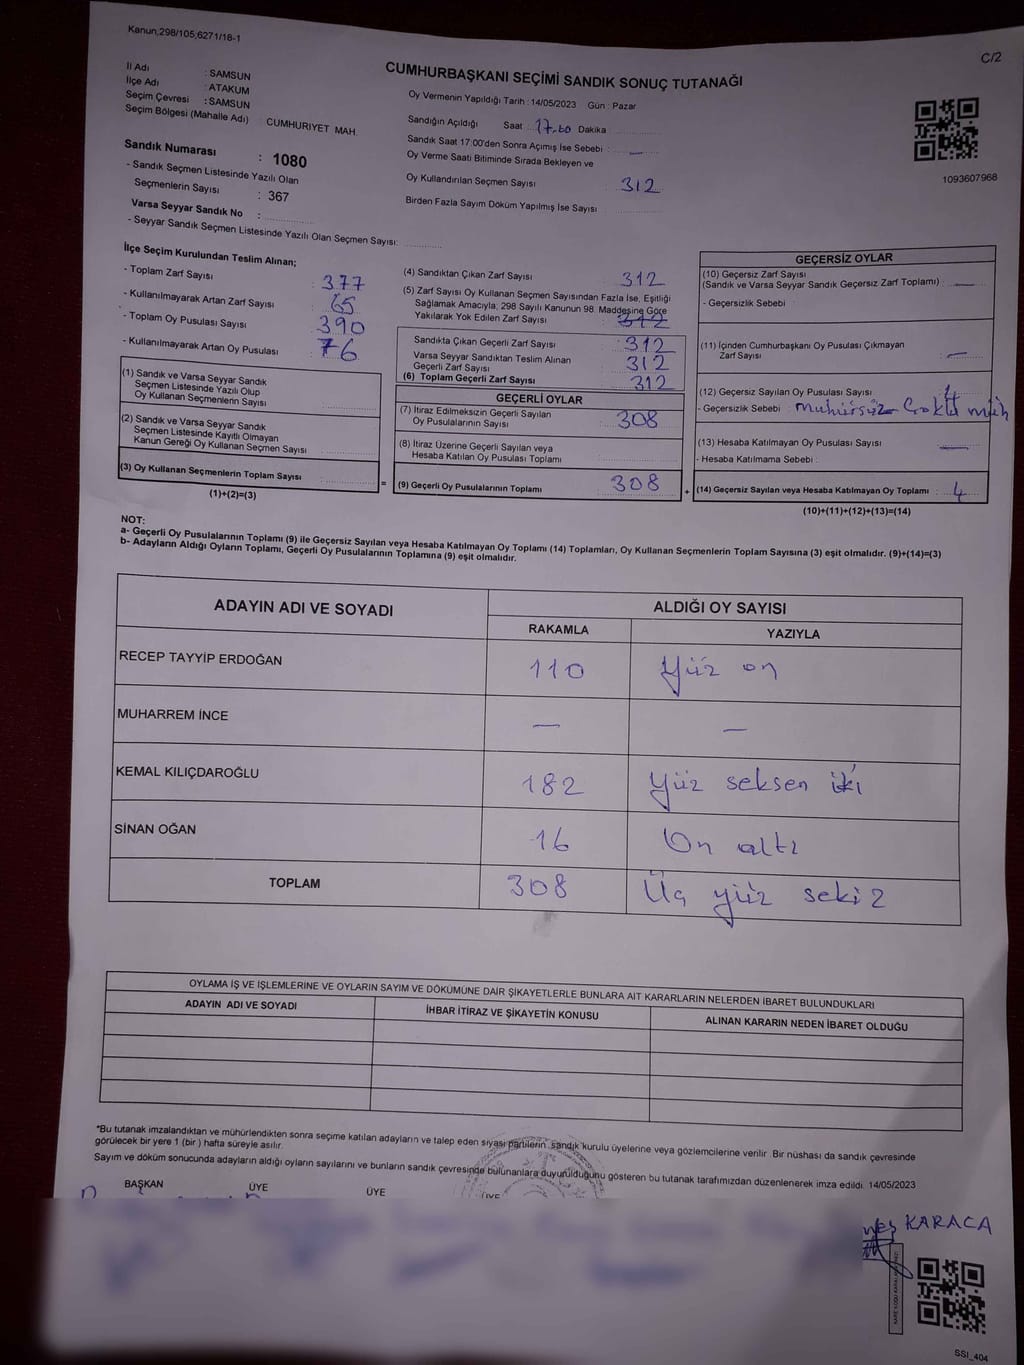 Kanun,298/105,6271/18-1
C/2
CUMHURBAŞKANI SEÇİMİ SANDIK SONUÇ TUTANAĞI
İl Adı : SAMSUN
İlçe Adı : ATAKUM
Seçim Çevresi : SAMSUN
Seçim Bölgesi (Mahalle Adı) CUMHURİYET MAH.
Sandık Numarası : 1080
- Sandık Seçmen Listesinde Yazılı Olan
Seçmenlerin Sayısı : 367
Varsa Seyyar Sandık No :
- Seyyar Sandık Seçmen Listesinde Yazılı Olan Seçmen Sayısı:
Oy Vermenin Yapıldığı Tarih : 14/05/2023 Gün : Pazar
Sandığın Açıldığı Saat : 17.00 Dakika
Sandık Saat 17:00'den Sonra Açımış İse Sebebi : —
Oy Verme Saati Bitiminde Sırada Bekleyen ve
Oy Kullandırılan Seçmen Sayısı 312
Birden Fazla Sayım Döküm Yapılmış İse Sayısı
1093607968
İlçe Seçim Kurulundan Teslim Alınan;
- Toplam Zarf Sayısı : 377
- Kullanılmayarak Artan Zarf Sayısı : 65
- Toplam Oy Pusulası Sayısı : 390
- Kullanılmayarak Artan Oy Pusulası : 76
(1) Sandık ve Varsa Seyyar Sandık
Seçmen Listesinde Yazılı Olup
Oy Kullanan Seçmenlerin Sayısı
(2) Sandık ve Varsa Seyyar Sandık
Seçmen Listesinde Kayıtlı Olmayan
Kanun Gereği Oy Kullanan Seçmen Sayısı
(3) Oy Kullanan Seçmenlerin Toplam Sayısı
(1)+(2)=(3)
=
(4) Sandıktan Çıkan Zarf Sayısı : 312
(5) Zarf Sayısı Oy Kullanan Seçmen Sayısından Fazla İse, Eşitliği
Sağlamak Amacıyla, 298 Sayılı Kanunun 98. Maddesine Göre
Yakılarak Yok Edilen Zarf Sayısı : 312
Sandıkta Çıkan Geçerli Zarf Sayısı : 312
Varsa Seyyar Sandıktan Teslim Alınan
Geçerli Zarf Sayısı : 312
(6) Toplam Geçerli Zarf Sayısı 312
GEÇERLİ OYLAR
(7) İtiraz Edilmeksizin Geçerli Sayılan
Oy Pusulalarının Sayısı : 308
(8) İtiraz Üzerine Geçerli Sayılan veya
Hesaba Katılan Oy Pusulası Toplamı
(9) Geçerli Oy Pusulalarının Toplamı : 308
+
GEÇERSİZ OYLAR
(10) Geçersiz Zarf Sayısı
(Sandık ve Varsa Seyyar Sandık Geçersiz Zarf Toplamı) : —
- Geçersizlik Sebebi :
(11) İçinden Cumhurbaşkanı Oy Pusulası Çıkmayan
Zarf Sayısı : —
(12) Geçersiz Sayılan Oy Pusulası Sayısı : 4
- Geçersizlik Sebebi : mühürsüz
(13) Hesaba Katılmayan Oy Pusulası Sayısı : —
- Hesaba Katılmama Sebebi :
(14) Geçersiz Sayılan veya Hesaba Katılmayan Oy Toplamı : 4
(10)+(11)+(12)+(13)=(14)
NOT:
a- Geçerli Oy Pusulalarının Toplamı (9) ile Geçersiz Sayılan veya Hesaba Katılmayan Oy Toplamı (14) Toplamları, Oy Kullanan Seçmenlerin Toplam Sayısına (3) eşit olmalıdır. (9)+(14)=(3)
b- Adayların Aldığı Oyların Toplamı, Geçerli Oy Pusulalarının Toplamına (9) eşit olmalıdır.
ADAYIN ADI VE SOYADI ALDIĞI OY SAYISI
RAKAMLA YAZIYLA
RECEP TAYYİP ERDOĞAN 110 Yüz on
MUHARREM İNCE — —
KEMAL KILIÇDAROĞLU 182 Yüz seksen iki
SİNAN OĞAN 16 On altı
TOPLAM 308 Üç yüz sekiz
OYLAMA İŞ VE İŞLEMLERİNE VE OYLARIN SAYIM VE DÖKÜMÜNE DAİR ŞİKAYETLERLE BUNLARA AİT KARARLARIN NELERDEN İBARET BULUNDUKLARI
ADAYIN ADI VE SOYADI İHBAR İTİRAZ VE ŞİKAYETİN KONUSU ALINAN KARARIN NEDEN İBARET OLDUĞU
*Bu tutanak imzalandıktan ve mühürlendikten sonra seçime katılan adayların ve talep eden siyasi partilerin sandık kurulu üyelerine veya gözlemcilerine verilir. Bir nüshası da sandık çevresinde
görülecek bir yere 1 (bir ) hafta süreyle asılır.
Sayım ve döküm sonucunda adayların aldığı oyların sayılarını ve bunların sandık çevresinde bulunanlara duyurulduğunu gösteren bu tutanak tarafımızdan düzenlenerek imza edildi. 14/05/2023
BAŞKAN ÜYE ÜYE ÜYE
KARACA
SSİ_404